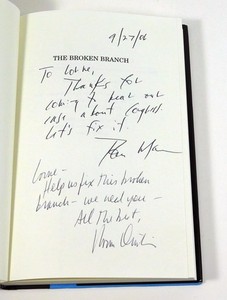 9/27/06
THE BROKEN BRANCH
To Lorne,
Thanks for
coming to hear our
case about Congress.
Let's fix it!
Tom Mann
Lorne –
Help us fix this broken
branch – we need you –
All the best,
Norm Ornstein